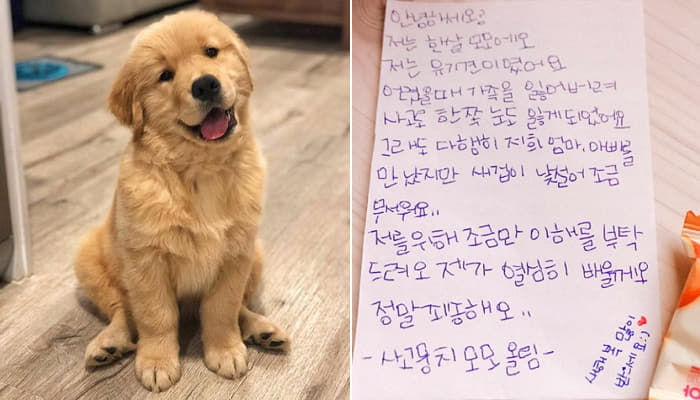 안녕하세요?
저는 한살 모모에요
저는 유기견이였어요
어렸을때 가족을 잃어버려
사고로 한쪽 눈도 잃게되었어요
그래도 다행히 저희 엄마, 아빠를
만났지만 새집이 낯설어 조금
무서워요..
저를위해 조금만 이해를 부탁
드려요 제가 열심히 배울게요
정말 죄송해요..
-사고뭉치 모모 올림-